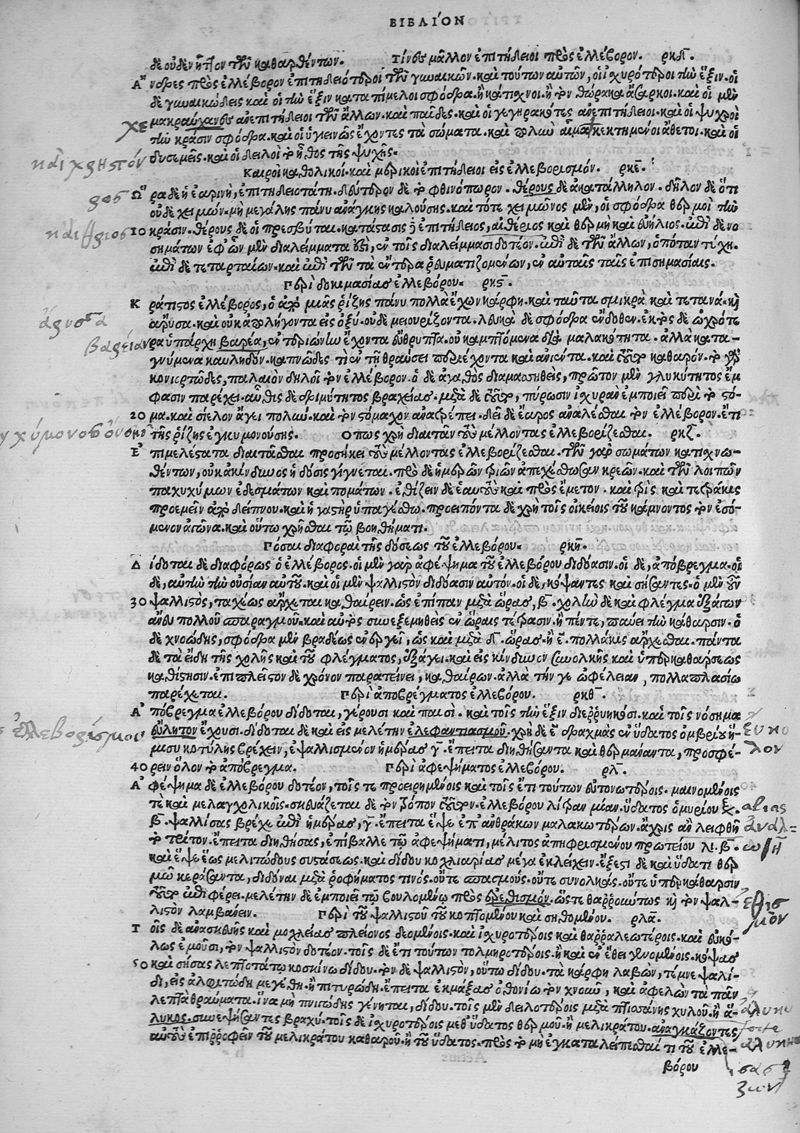 ΒΙΒΛΙΟΝ
δὲ οὐδὲν ἧττον τῶν καθαρθέντων. Τίνες μᾶλλον ἐπιτήδειοι πρὸς ἐλλέβορον. ρκδ.
Ἄνδρες πρὸς ἐλλέβορον ἐπιτηδειότεροι τῶν γυναικῶν. καὶ τούτων αὐτῶν, οἱ ἰσχυρότεροι τὴν ἕξιν. οἱ
δὲ γυναικώδεις καὶ οἱ τὴν ἕξιν κατάπιμελοι σφόδρα. ἢ κάτισχνοι. ἢ τὸν θώρακα ἄσαρκοι. καὶ οἱ μὲν
μακραύχενες ἀνεπιτήδειοι τῶν ἄλλων. καὶ παῖδες. καὶ οἱ γεγηρακότες ἀνεπιτήδειοι. καὶ οἱ ψυχροὶ
τὴν κρᾶσιν σφόδρα. καὶ οἱ ὑγιεινῶς ἔχοντες τὰ σώματα. καὶ πολὺ αἷμα κεκτημένοι ἄθετοι. καὶ οἱ
δυσεμεῖς. καὶ οἱ δειλοὶ τὸ ἦθος τῆς ψυχῆς.
Καιροὶ καθολικοὶ καὶ μερικοὶ ἐπιτήδειοι εἰς ἐλλεβορισμόν. ρκε.
Ὥρα δὲ ἡ ἐαρινὴ, ἐπιτηδειοτάτη. δεύτερον δὲ τὸ φθινόπωρον. θέρους δὲ ἀκατάλληλον. δῆλον δὲ ὅτι
οὐδὲ χειμών. μὴ μεγάλης πάνυ ἀνάγκης καλούσης. καὶ τότε χειμῶνος μὲν, οἱ σφόδρα θερμοὶ τὴν
10 κρᾶσιν. θέρους δὲ οἱ πρεσβύται. κατάστασις δὲ ἐπιτήδειος, αἴθριος καὶ θερμὴ καὶ εὐήλιος. ἐπὶ δὲ νο-
σημάτων ἐφ' ὧν μὲν διαλείμματα ᾖ, ἐν τοῖς διαλείμμασι δοτέον. ἐπὶ δὲ τῶν ἄλλων, ὁπόταν τύχῃ.
ἐπὶ δὲ τεταρταίων. καὶ ἐπὶ τῶν τὰ ἔντερα ῥευματιζομένων, ἐν αὐταῖς ταῖς ἐπισημασίαις.
Περὶ δοκιμασίας ἐλλεβόρου. ρκϛ.
Κράτιστος ἐλλέβορος, ὁ ἀπὸ μιᾶς ῥίζης πάνυ πολλὰ ἔχων κάρφη. καὶ ταῦτα σμικρὰ καὶ τετανὰ. καὶ
ἄρυσα. καὶ οὐκ ἀπολήγοντα εἰς ὀξύ. οὐδὲ μειουρίζοντα. λευκὰ δὲ σφόδρα ἔνδοθεν. ἐκτὸς δὲ ὠχρότε-
ρα ὑπάρχῃ βαρέα, ἐντεριώνην ἔχοντα εὔθρυπτα. οὐ καμπτόμενα διὰ μαλακότητα. ἀλλὰ κατα-
γνύμενα καυληδόν. καπνῶδές τι ἐν τῇ θραύσει παρέχοντα καὶ ἀνιέντα. καὶ τοῦτο καθαρόν. τὸ γὰρ
κονιορτῶδες, παλαιὸν δηλοῖ τὸν ἐλλέβορον. ὁ δὲ ἀγαθὸς διαμασηθεὶς, πρῶτον μὲν γλυκύτητος ἔμ-
φασιν παρέχει. αὖθις δὲ δριμύτητος βραχείας. μετὰ δὲ τοῦτο, πύρωσιν ἰσχυρὰν ἐμποιεῖ περὶ τὸ στό-
20 μα. καὶ σίελον ἄγει πολύν. καὶ τὸν στόμαχον ἀνατρέπει. δεῖ δὲ ἔαρος ἀναλέγεσθαι τὸν ἐλλέβορον. ἔτι
τῆς ῥίζης ἐγκυμονούσης. Ὅπως χρὴ διαιτᾶν τοὺς μέλλοντας ἐλλεβορίζεσθαι. ρκζ.
Ἐπιμελέστατα διαιτᾶσθαι προσήκει τοὺς μέλλοντας ἐλλεβορίζεσθαι. τῶν γὰρ σωμάτων κατισχνω-
θέντων, οὐκ ἀκίνδυνος ἡ δόσις γίγνεται. πρὸ δὲ ἡμερῶν τριῶν ἀπεχέσθωσαν κρεῶν. καὶ τῶν λοιπῶν
παχυχύμων ἐδεσμάτων καὶ πομάτων. ἐθίζειν δὲ ἑαυτοὺς καὶ πρὸς ἔμετον. καὶ τρὶς καὶ τετράκις
προεμεῖν ἀπὸ δείπνου. καὶ ἡ γαστὴρ ὑπαγέσθω. προειπόντα δὲ χρὴ τοῖς οἰκείοις τοῦ κάμνοντος τὸν ἐσό-
μενον ἀγῶνα. καὶ οὕτω χρῆσθαι τῷ βοηθήματι.
Πόσαι διαφοραὶ τῆς δόσεως τοῦ ἐλλεβόρου. ρκη.
Δίδοται δὲ διαφόρως ὁ ἐλλέβορος. οἱ μὲν γὰρ ἀφέψημα τοῦ ἐλλεβόρου διδόασιν. οἱ δὲ, ἀπόβρεγμα. οἱ
δὲ, αὐτὴν τὴν οὐσίαν αὐτοῦ. καὶ οἱ μὲν ψαλιστὸν διδόασιν αὐτόν. οἱ δὲ, κόψαντες καὶ σήσαντες. ὁ μὲν οὖν
30 ψαλιστὸς, ταχέως ἄρχεται καθαίρειν. ὡς ἐπίπαν μετὰ ὥρας, β. χολὴν δὲ καὶ φλέγμα ἐξάγων
ἄνευ πολλοῦ σπαραγμοῦ. καὶ αὐτὸς συνεξεμηθεὶς ἐν ὥραις τέτρασιν. ἢ πέντε, παύει τὴν κάθαρσιν. ὁ
δὲ χνοώδης, σφόδρα μὲν βραδέως ἐνεργεῖ, ὡς καὶ μετὰ δ. ὥρας. ἢ ε. πολλάκις ἄρχεσθαι. πάντα
δὲ τὰ εἴδη τῆς χολῆς καὶ τοῦ φλέγματος, ἐξάγει. καὶ εἰς κίνδυνον συνολκῆς καὶ ὑπερκαθάρσεως
καθίστησιν. ἐπὶ πλεῖστον δὲ χρόνον παρατείνει, καθαίρων. ἀλλὰ τήν γε ὠφέλειαν, πολλαπλασίω
παρέχεται. Περὶ ἀποβρέγματος ἐλλεβόρου. ρκθ.
Ἀπόβρεγμα ἐλλεβόρου δίδοται, γέρουσι καὶ παισί. καὶ τοῖς τὴν ἕξιν διερρυηκόσι. καὶ τοῖς νόσημα
εὔλητον ἔχουσι. δίδοται δὲ καὶ εἰς μελέτην ἐλεφαντιασμοῦ. χρὴ δὲ ε δραχμὰς ἐν ὕδατος ὀμβρίου ἡ-
μίσυ κοτύλης βρέχειν, ἐψαλισμένον ἡμέρας γ. ἔπειτα διηθήσαντα καὶ θερμάναντα, προσφέ-
40 ρειν ὅλον τὸ ἀπόβρεγμα. Περὶ ἀφεψήματος ἐλλεβόρου. ρλ.
Ἀφέψημα δὲ ἐλλεβόρου δοτέον, τοῖς τε προειρημένοις καὶ τοῖς ἔτι τούτων εὐτονωτέροις. μαινομένοις
τε καὶ μελαγχολικοῖς. σκευάζεται δὲ τὸν τρόπον τοῦτον. ἐλλεβόρου λίτραν μίαν. ὕδατος ὀμβρίου ξε.
β. ψαλίσας βρέχε ἐπὶ ἡμέρας, γ. ἔπειτα ἕψε ἐπ' ἀνθράκων μαλακωτέρων. ἄχρις ἂν λειφθῇ
τὸ τρίτον. ἔπειτα διηθήσας, ἐπίβαλλε τῷ ἀφεψήματι, μέλιτος ἀπηφρισμένου πρωτείου λι. β.
καὶ ἕψε ἕως μελιτώδους συστάσεως. καὶ δίδου κοχλιάριον μέγα ἐκλείχειν. ἔξεστι δὲ καὶ ὕδατι θερ-
μῷ κεράσαντα, διδόναι μετὰ ῥοφήματός τινος. οὔτε σπασμοὺς. οὔτε συνολκὰς. οὔτε ὑπερκάθαρσιν
τοῦτο ἐπιφέρει. μελέτην δὲ ἐμποιεῖ τῷ βουλομένῳ πρὸς ἐρεθισμόν. ὥστε θαρρούντως καὶ τὸν ψαλ-
λιστὸν λαμβάνειν. Περὶ τοῦ ψαλιστοῦ τοῦ κοπτομένου καὶ σηθομένου. ρλα.
Τοῖς δὲ ἀνασκευῆς καὶ μοχλείας πλείονος δεομένοις. καὶ ἰσχυροτέροις καὶ θαρραλεωτέροις. καὶ εὐκό-
λως ἐμοῦσι, τὸν ψαλιστὸν δοτέον. τοῖς δὲ ἔτι τούτων τολμηροτέροις. ἢ καὶ ἐν ἔθει γενομένοις. κόψας
50 καὶ σήσας λεπτοτάτῳ κοσκίνῳ δίδου. τὸν δὲ ψαλιστὸν, οὕτω δίδου. τὰ κάρφη λαβὼν, τέμνε ψαλί-
δι, εἰς ἀλφιτώδη μεγέθη. ἢ πιτυρώδη. ἔπειτα ἐκμάξας ὀθονίῳ τὸν χνοῦν, καὶ ἀφελὼν τὰ πάνυ
λεπτὰ θραύματα. ἵνα μὴ πνιγώδης γένηται, δίδου. τοῖς μὲν δειλοτέροις μετὰ πτισάνης χυλοῦ. ἢ ἄ-
λυκος. συνεψήσαντες βραχύ. τοῖς δὲ ἰσχυροτέροις μεθ' ὕδατος θερμοῦ. ἢ μελικράτου. ἀναγκάζοντες
αὐτοὺς ἐπιρροφεῖν τοῦ μελικράτου καθαροῦ. ἢ τοῦ ὕδατος. πρὸς τὸ μὴ ἐγκαταλείπεσθαί τι τοῦ ἐλλε-
βόρου